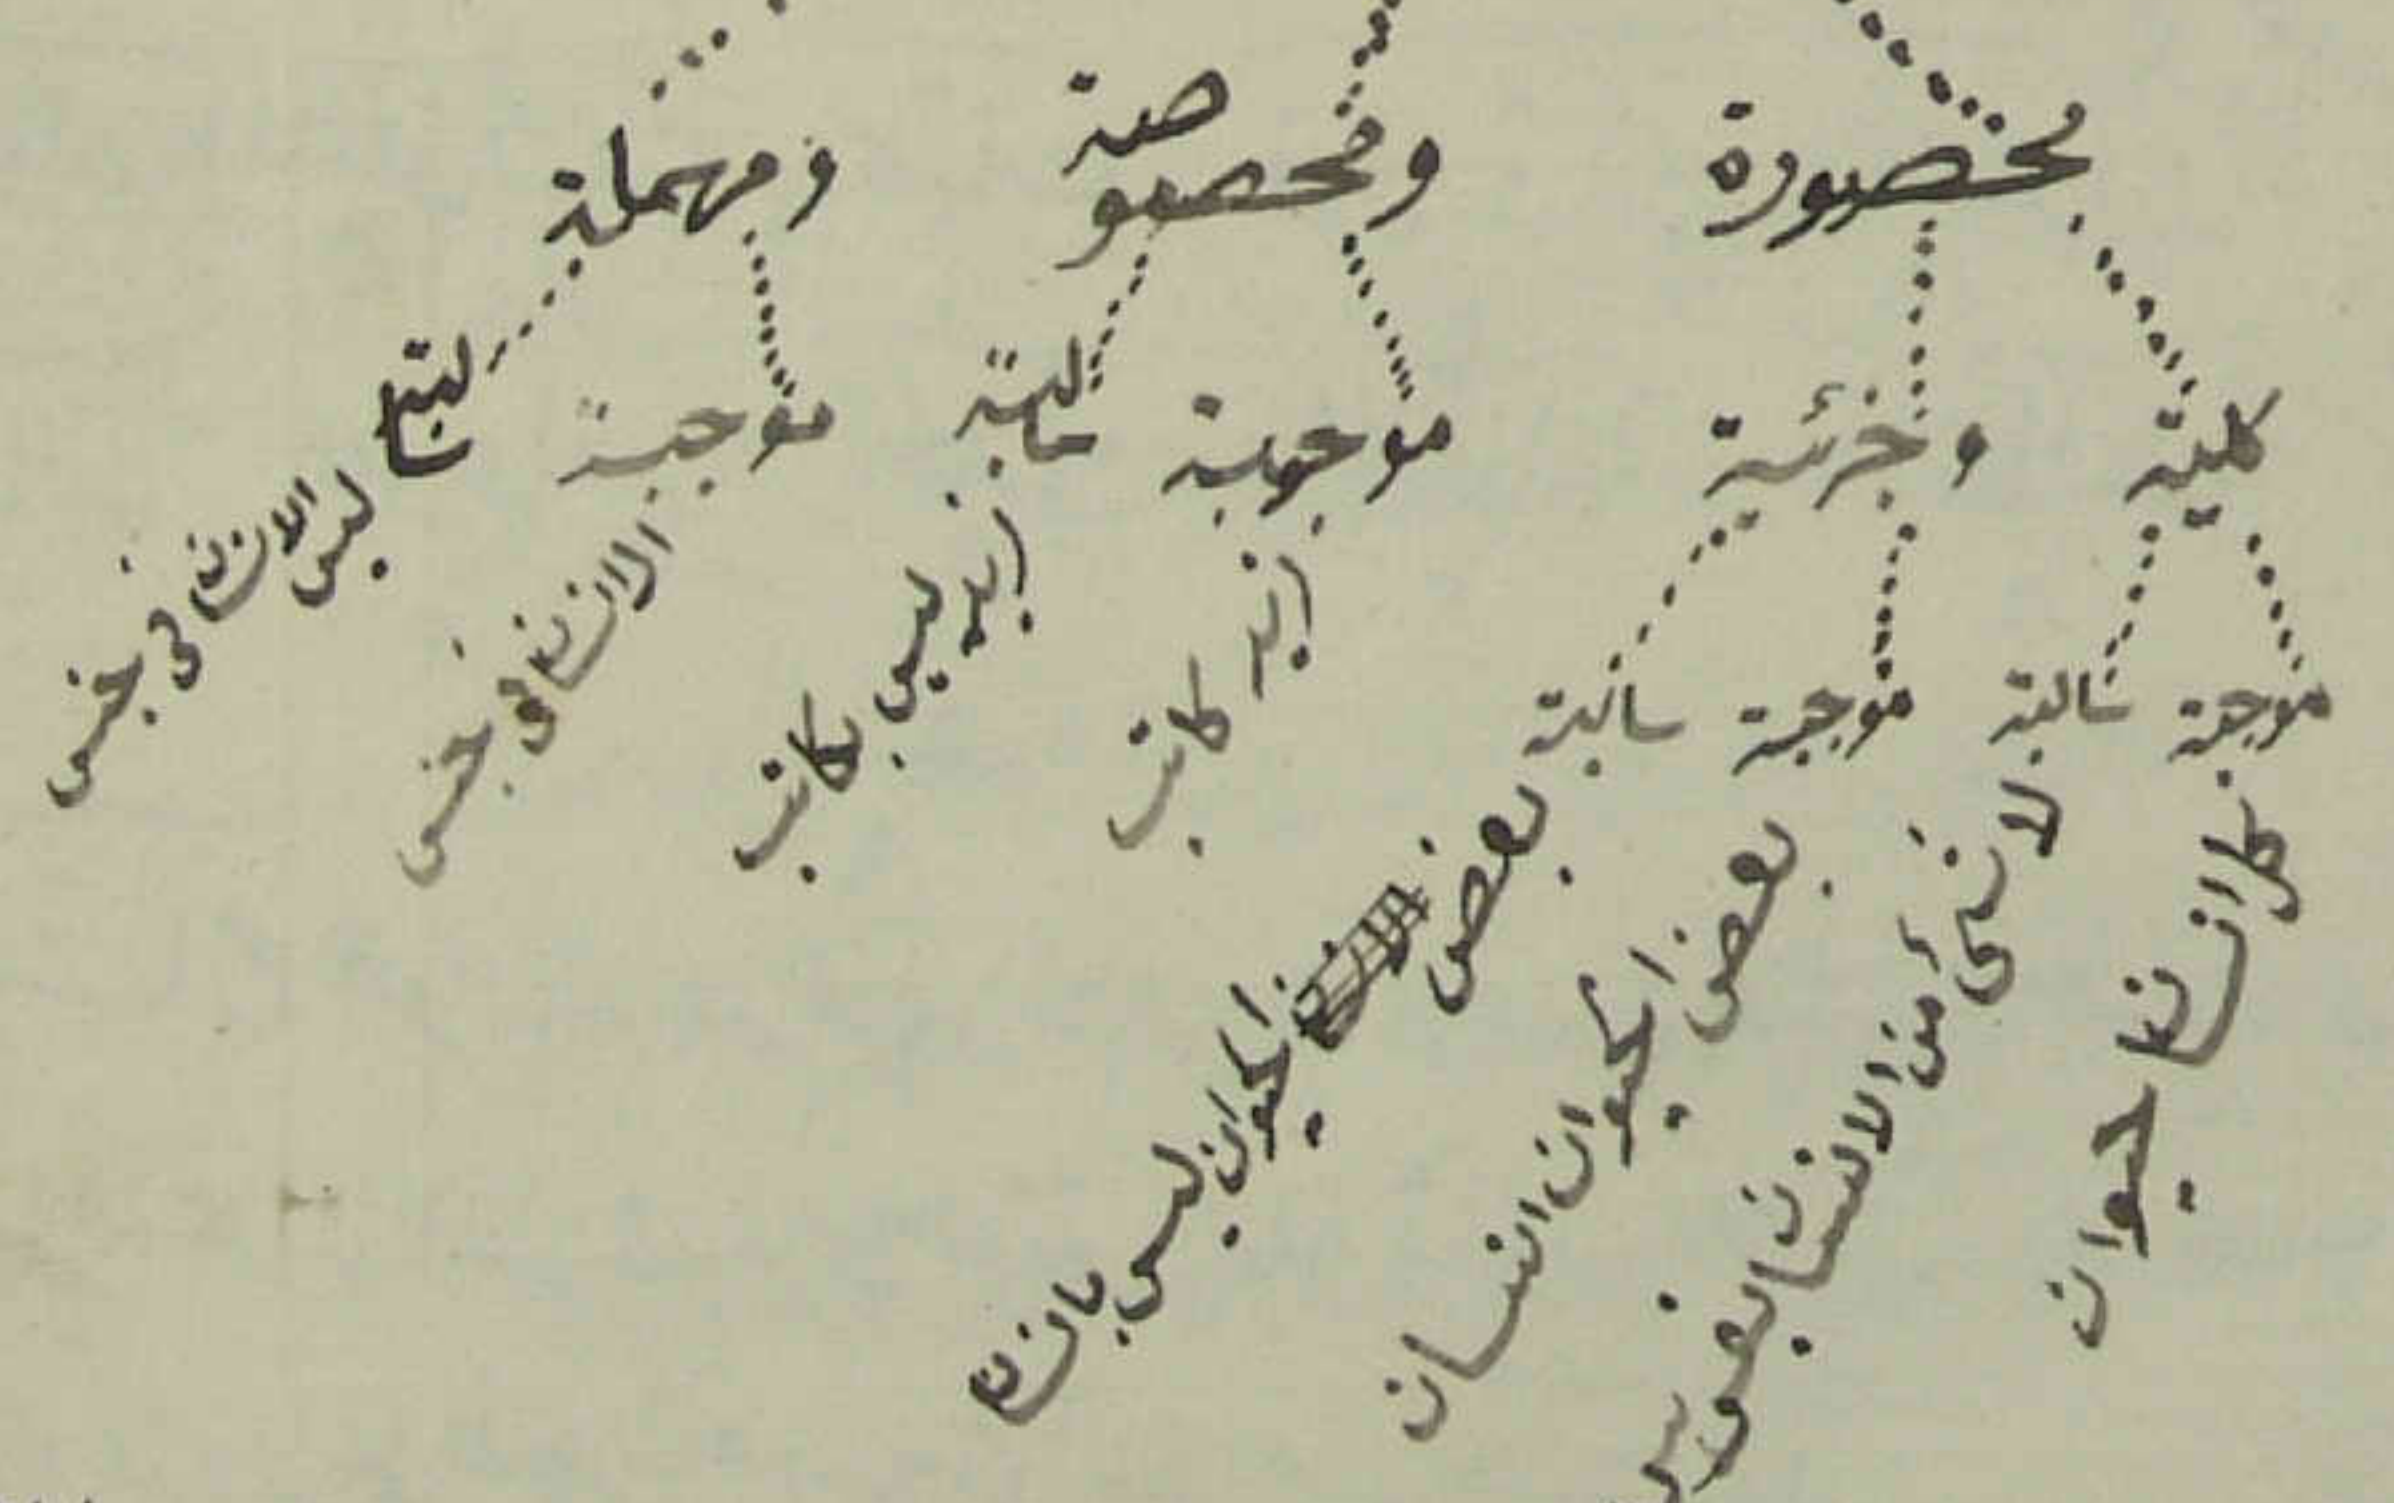 محصورة
ومخصوصة
ومهملة
كلية
وجزئية
موجبة
سالبة
موجبة
سالبة
موجبة
سالبة
موجبة
سالبة
كل انسان حيوان
لا شئ من الانسان بفرس
بعض الحيوان انسان
بعض الحيوان ليس بانسان
زيد كاتب
زيد ليس بكاتب
الانسان فى خسر
ليس الانسان فى خسر